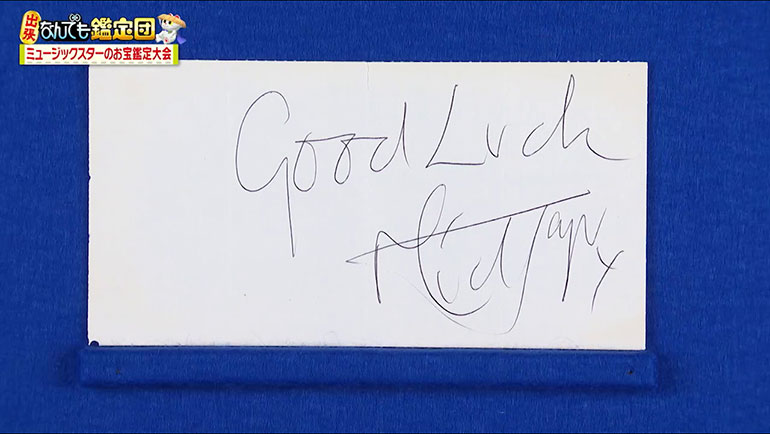 出張 なんでも鑑定団
ミュージックスターのお宝鑑定大会
Good Luck